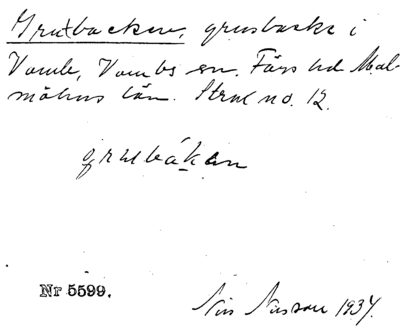 Grusbacken, grusbacke i
Vomb, Vombs sn. Färs hd Mal-
möhus län. Strul no. 12.
grusbákan
Nr 5599.
Nils Nilsson 1937.